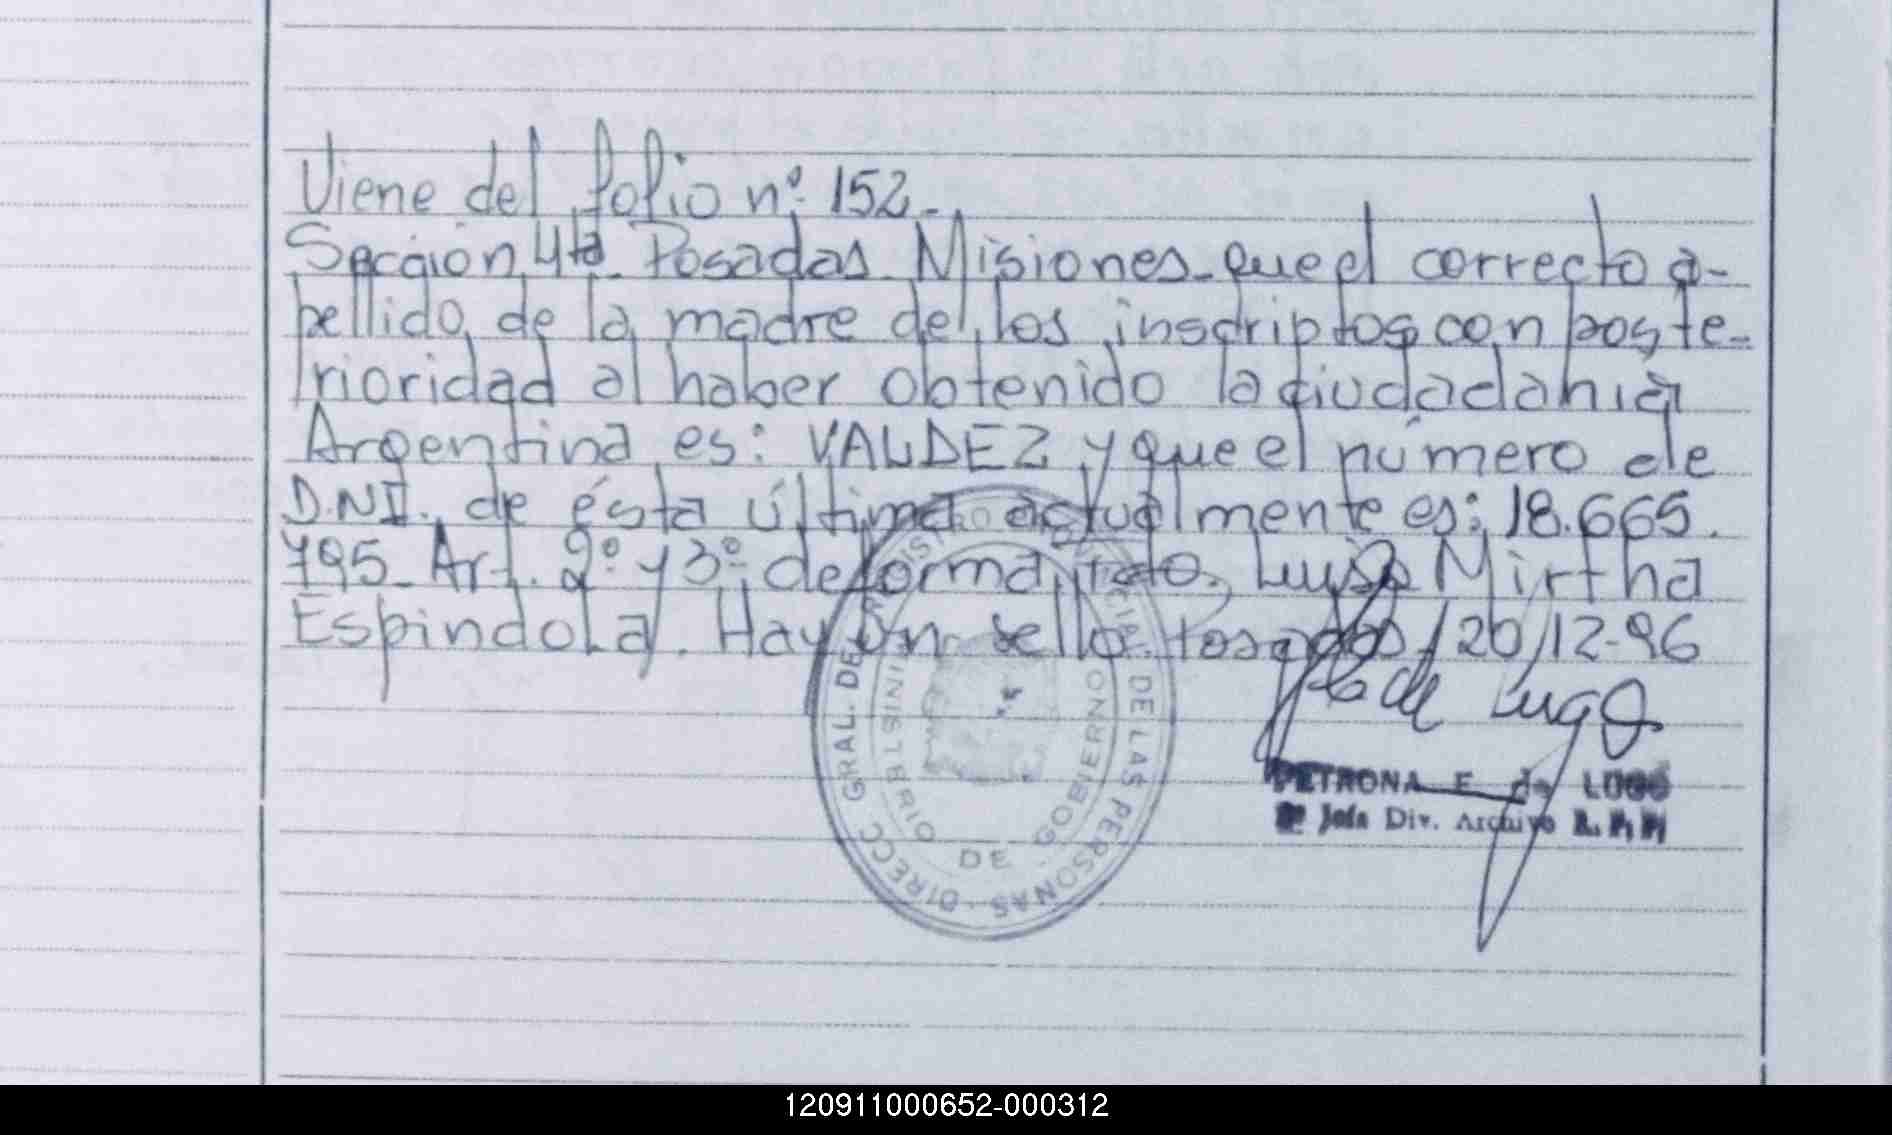 Viene del folio nº 152.-
Sección 4ta. Posadas Misiones-que el correcto a-
pellido de la madre de los inscriptos con poste-
rioridad al haber obtenido la ciudadania
Argentina es: VALDEZ y que el número de
D.NI. de ésta última actualmente es: 18.665.
795. Art. 2º y 3º de forma. Fdo. Luisa Mirtha
Espindola. Hay un sello. Posadas, 20/12-96
de Lugo
PETRONA E. de LUGO
Jefa Div. Archivo
DIRECC GRAL. DEL REGISTRO PROVINCIAL DE LAS PERSONAS
MINISTERIO DE GOBIERNO
120911000652-000312